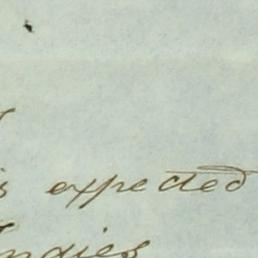 s expected
ndies